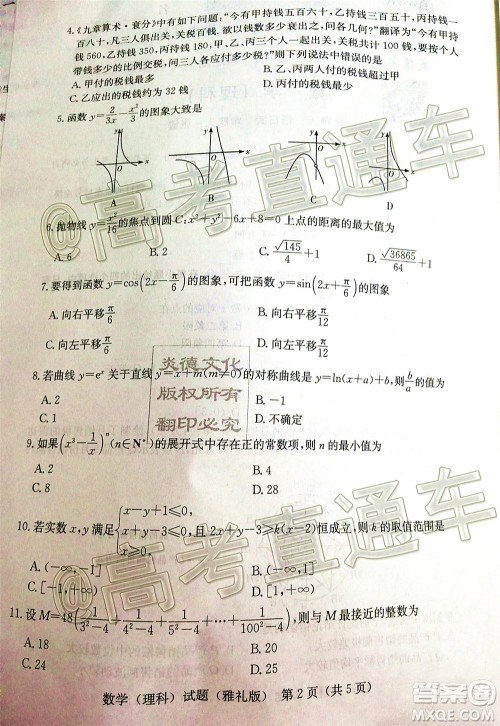 4.《九章算术·衰分》中有如下问题："今有甲持钱五百六十,乙持钱三百五十,丙持钱一
百八十,凡三人俱出关,关税百钱.欲以钱数多少衰出之,问各几何?"翻译为"今有甲持
钱560,乙持钱350,丙持钱180,甲、乙、丙三个人一起出关,关税共计100钱,要按个人
带钱多少的比例交税,问三人各应付多少税?"则下列说法中错误的是
A.甲付的税钱最多
C.乙应出的税钱约为32钱
5.函数y=2/3x-x²/3的图象大致是
y x O
y x O
y x O
y x O
A B C D
6.抛物线y=x²/16的焦点到圆C:x²+y²-6x+8=0上点的距离的最大值为
A.6 B.2 C.√145/4+1 D.√36865/64+1
7.要得到函数y=cos(2x-π/6)的图象,可把函数y=sin(2x+π/6)的图象
A.向右平移π/6 B.向右平移π/12
C.向左平移π/6 D.向左平移π/12
8.若曲线y=eˣ关于直线y=x+m(m≠0)的对称曲线是y=ln(x+a)+b,则b/a的值为
A.2 B.-1
C.1 D.不确定
9.如果(x³-1/x)ⁿ(n∈N*)的展开式中存在正的常数项,则n的最小值为
A.2 B.4
C.8 D.28
10.若实数x,y满足{x-y+1≤0, x+y-3≤0,且2x+y-3≥k(x-1)恒成立,则k的取值范围是
A.(-∞,1]
C.[-∞,1] D.[-1,+∞)
11.设M=48(1/3²-4+1/4²-4+1/5²-4+…+1/100²-4),则与M最接近的整数为
A.18 B.20
C.24 D.25
数学(理科)试题(雅礼版) 第2页(共5页)
炎德文化
版权所有
翻印必究
@高考直通车
@高考直通车
答案圈
MXQE.COM